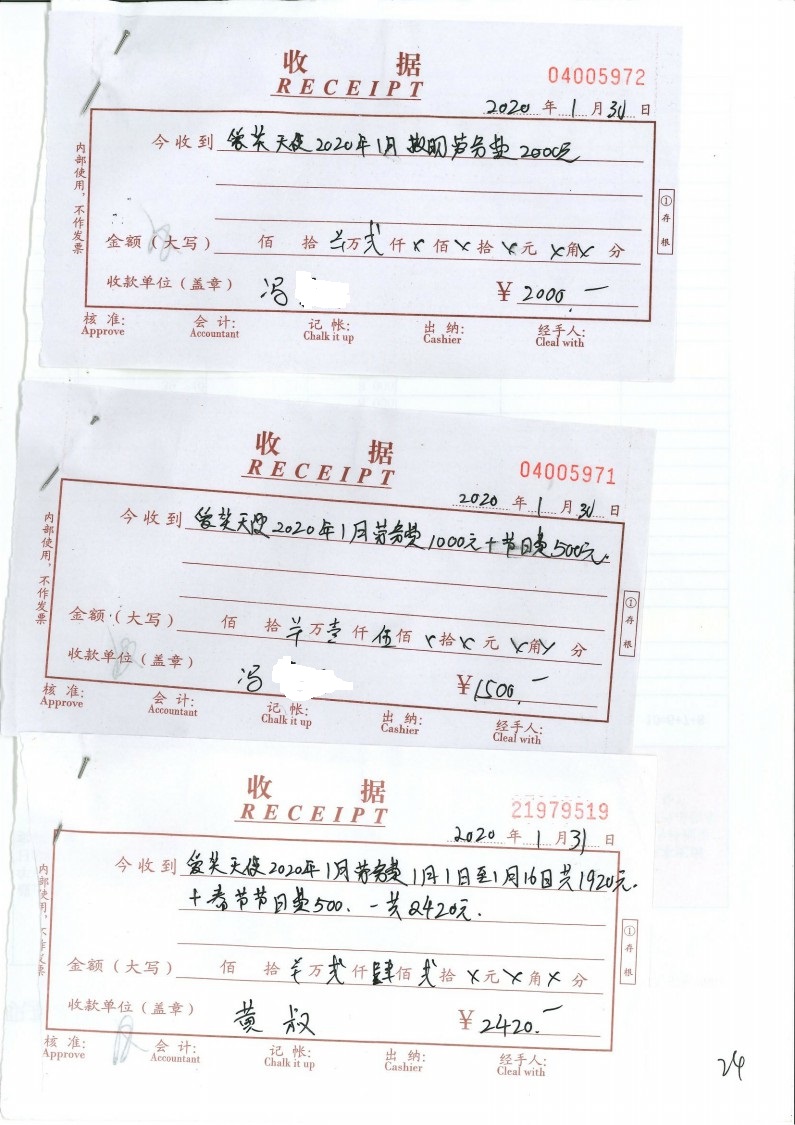 收 据
RECEIPT
04005972
2020 年 1 月 31 日
今收到 爱笑天使2020年1月 劳务费 2000元
金额(大写) 佰 拾 万 贰 仟 × 佰 × 拾 × 元 × 角 × 分
收款单位(盖章) 冯 ¥ 2000.一
核 准: 会 计: 记 帐: 出 纳: 经手人:
Approve Accountant Chalk it up Cashier Cleal with
内部使用,不作发票
①存根
收 据
RECEIPT
04005971
2020 年 1 月 31 日
今收到 爱笑天使2020年1月劳务费1000元+节日费500元.
金额(大写) 佰 拾 万 壹 仟 伍 佰 × 拾 × 元 × 角 × 分
收款单位(盖章) 冯 ¥ 1500.一
核 准: 会 计: 记 帐: 出 纳: 经手人:
Approve Accountant Chalk it up Cashier Cleal with
内部使用,不作发票
①存根
收 据
RECEIPT
21979519
2020 年 1 月 31 日
今收到 爱笑天使2020年1月劳务费1月1日至1月16日共1920元.
+春节节日费500.一共2420元.
金额(大写) 佰 拾 万 贰 仟 肆 佰 贰 拾 × 元 × 角 × 分
收款单位(盖章) 黄 叔 ¥ 2420.一
核 准: 会 计: 记 帐: 出 纳: 经手人:
Approve Accountant Chalk it up Cashier Cleal with
内部使用,不作发票
①存根
24